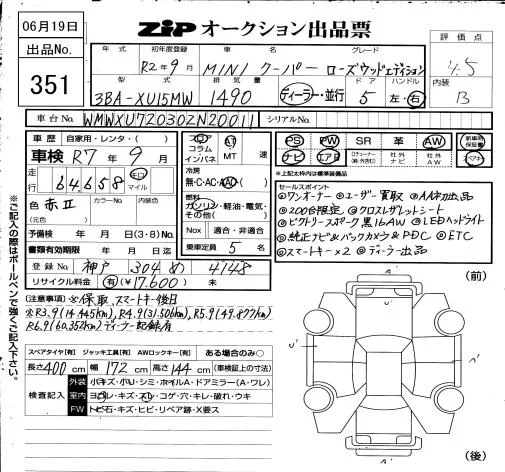 06月19日
ZIP オークション出品票
出品No.
351
年式 初年度登録 車名 グレード
R2年9月 MINI クーパー ローズウッドエディション
型式 排気量 ドア ハンドル
3BA-XU15MW 1490 ディーラー・並行 5 左・右
評価点
4.5
内装
B
車台No. WMWXU72030ZN20011 シリアルNo.
車歴 自家用・レンタ( )
車検 R7年9月
走行 64,658 キロ マイル
色 赤Ⅱ カラーNo. 内装色
(元色)
予備検 年 月 日(3・8)No.
書類有効期限 年 月 日
登録No. 神戸 304 4148
リサイクル料金 有(¥17,600) 未
フロア コラム インパネ
AT MT 速
冷房
無・C・AC・AAC
燃料
ガソリン・軽油・電気・その他( )
Nox 適合・非適合
乗車定員 5 名
PS PW SR 革 AW
ナビ エアB 社外ナビ 社外AW
新車時保証書
※上記太枠内は標準装備品
セールスポイント
◎ワンオーナー ◎ユーザー買取 ◎AA初出品
◎200台限定 ◎クロスレザーシート
◎ビクトリースポーク黒16AW ◎LEDヘッドライト
◎純正ナビ&バックカメラ&PDC ◎ETC
◎スマートキー×2 ◎ディーラー出品
(注意事項) ※保、取、スマートキー後日
※R3.9(14.445km)、R4.9(31.506km)、R5.9(49.877km)
R6.9(60.352km)ディーラー記録有
スペアタイヤ【有】 ジャッキ工具【有】 AWロックキー【有】 ある場合のみ○
長さ400cm 幅172cm 高さ144cm (車検証上の寸法)
検査記入
外装 小キズ・小U・シミ・ホイルA・ドアミラー(A・ワレ)
室内 ヨゴレ・キズ・スレ・コゲ・穴・キレ・破れ・ウキ
FW トビ石・キズ・ヒビ・リペア跡・X要ス
※ご記入の際はボールペンで強くご記入下さい。
(前)
(後)